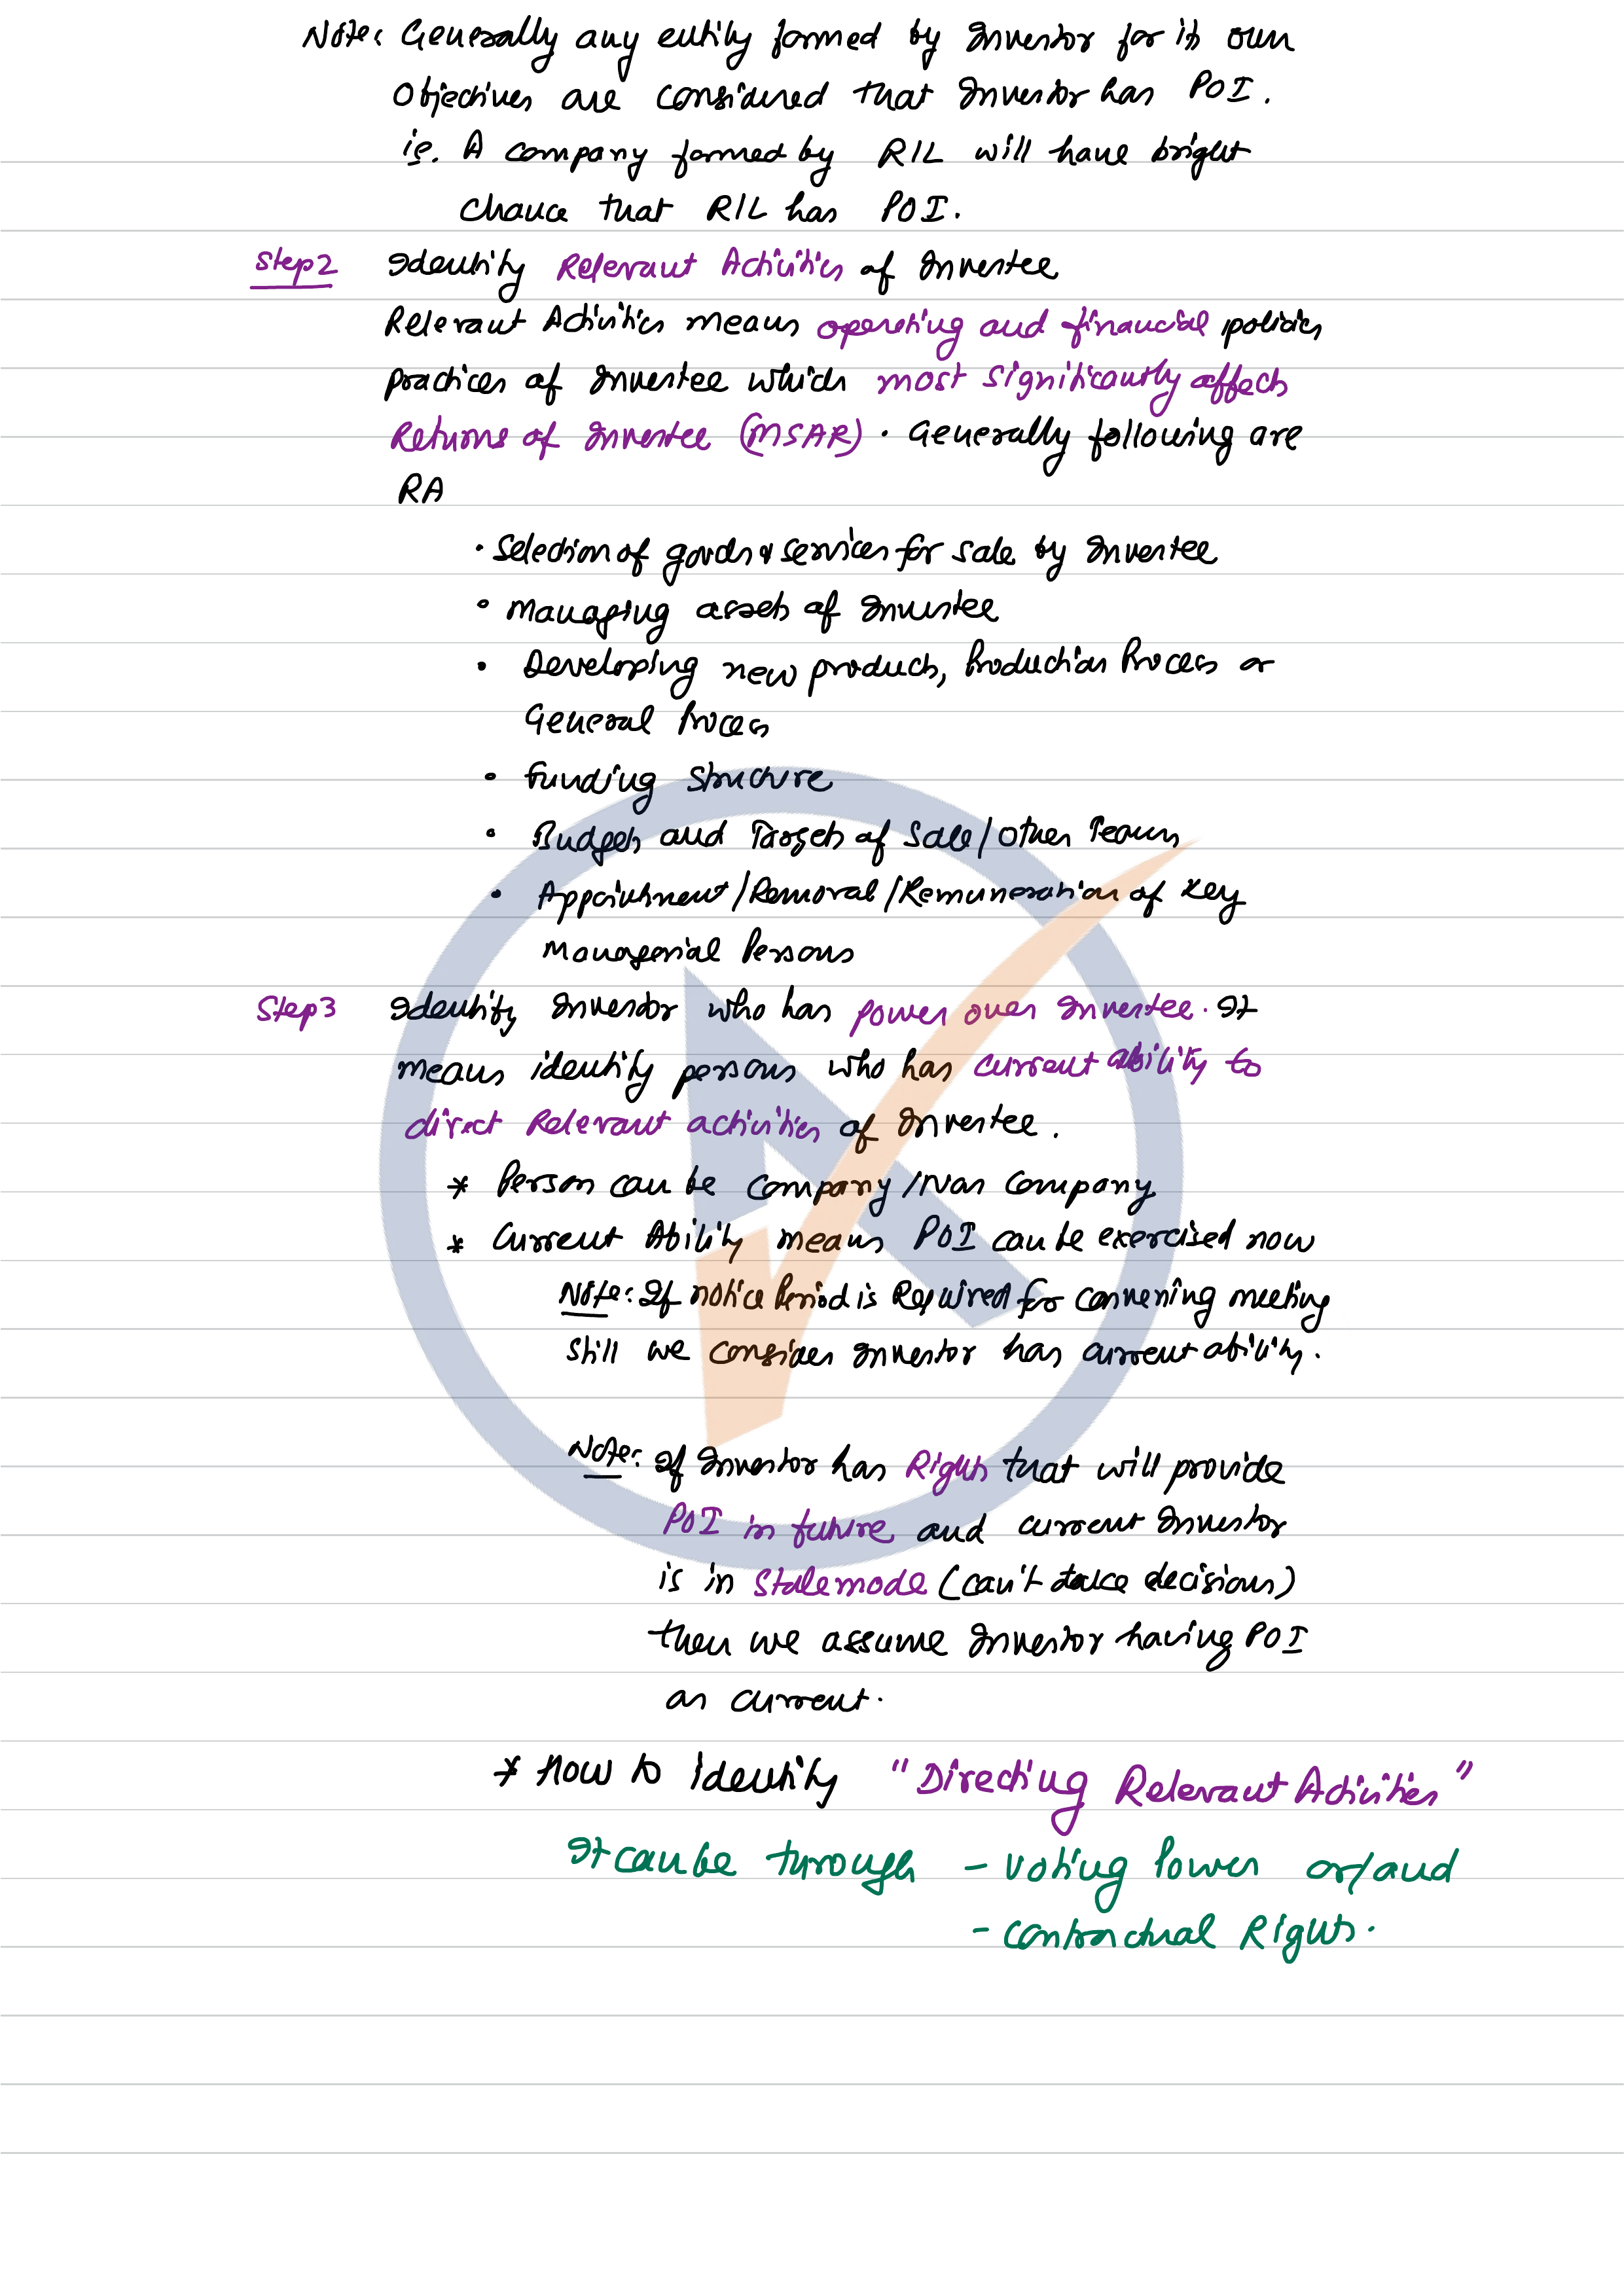 Note: Generally any entity formed by Investor for its own
Objectives are considered that Investor has POI.
ie. A company formed by RIL will have bright
chance that RIL has POI.
Step2 Identify Relevant Activities of Investee
Relevant Activities means operating and financial policies
practices of Investee which most significantly affects
Returns of Investee (MSAR). Generally following are
RA
• Selection of goods & services for sale by Investee
• Managing assets of Investee
• Developing new products, Production Process or
General Process
• Funding Structure
• Budgets and Targets of Sale/Other Teams
• Appointment/Removal/Remuneration of Key
Managerial Persons
Step3 Identify Investor who has power over Investee. It
means identify persons who has current ability to
direct Relevant activities of Investee.
* Person can be Company/Non Company
* Current Ability means POI can be exercised now
Note: If notice Period is Required for convening meeting
still we consider Investor has current ability.
Note: If Investor has Rights that will provide
POI in future and current Investor
is in Stalemode (can't take decisions)
then we assume Investor having POI
as current.
* How to identify "Directing Relevant Activities"
It can be through - Voting Power or/and
- Contractual Rights.